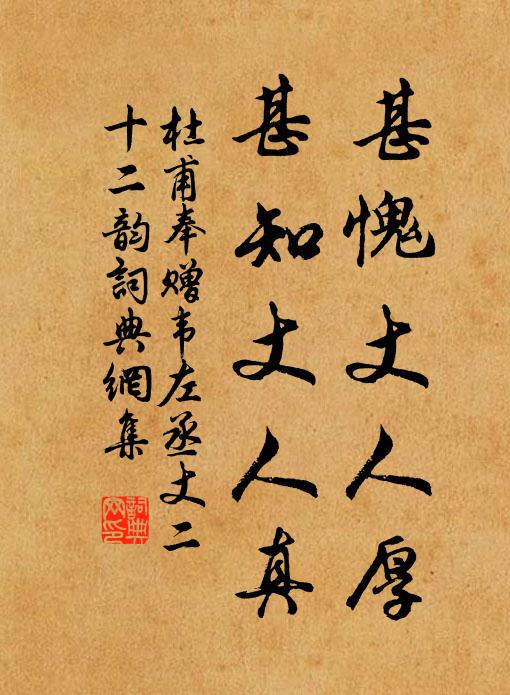 甚愧丈人厚
甚知丈人真
杜甫奉赠韦左丞丈二
十二韵詞典網集
詞典网印